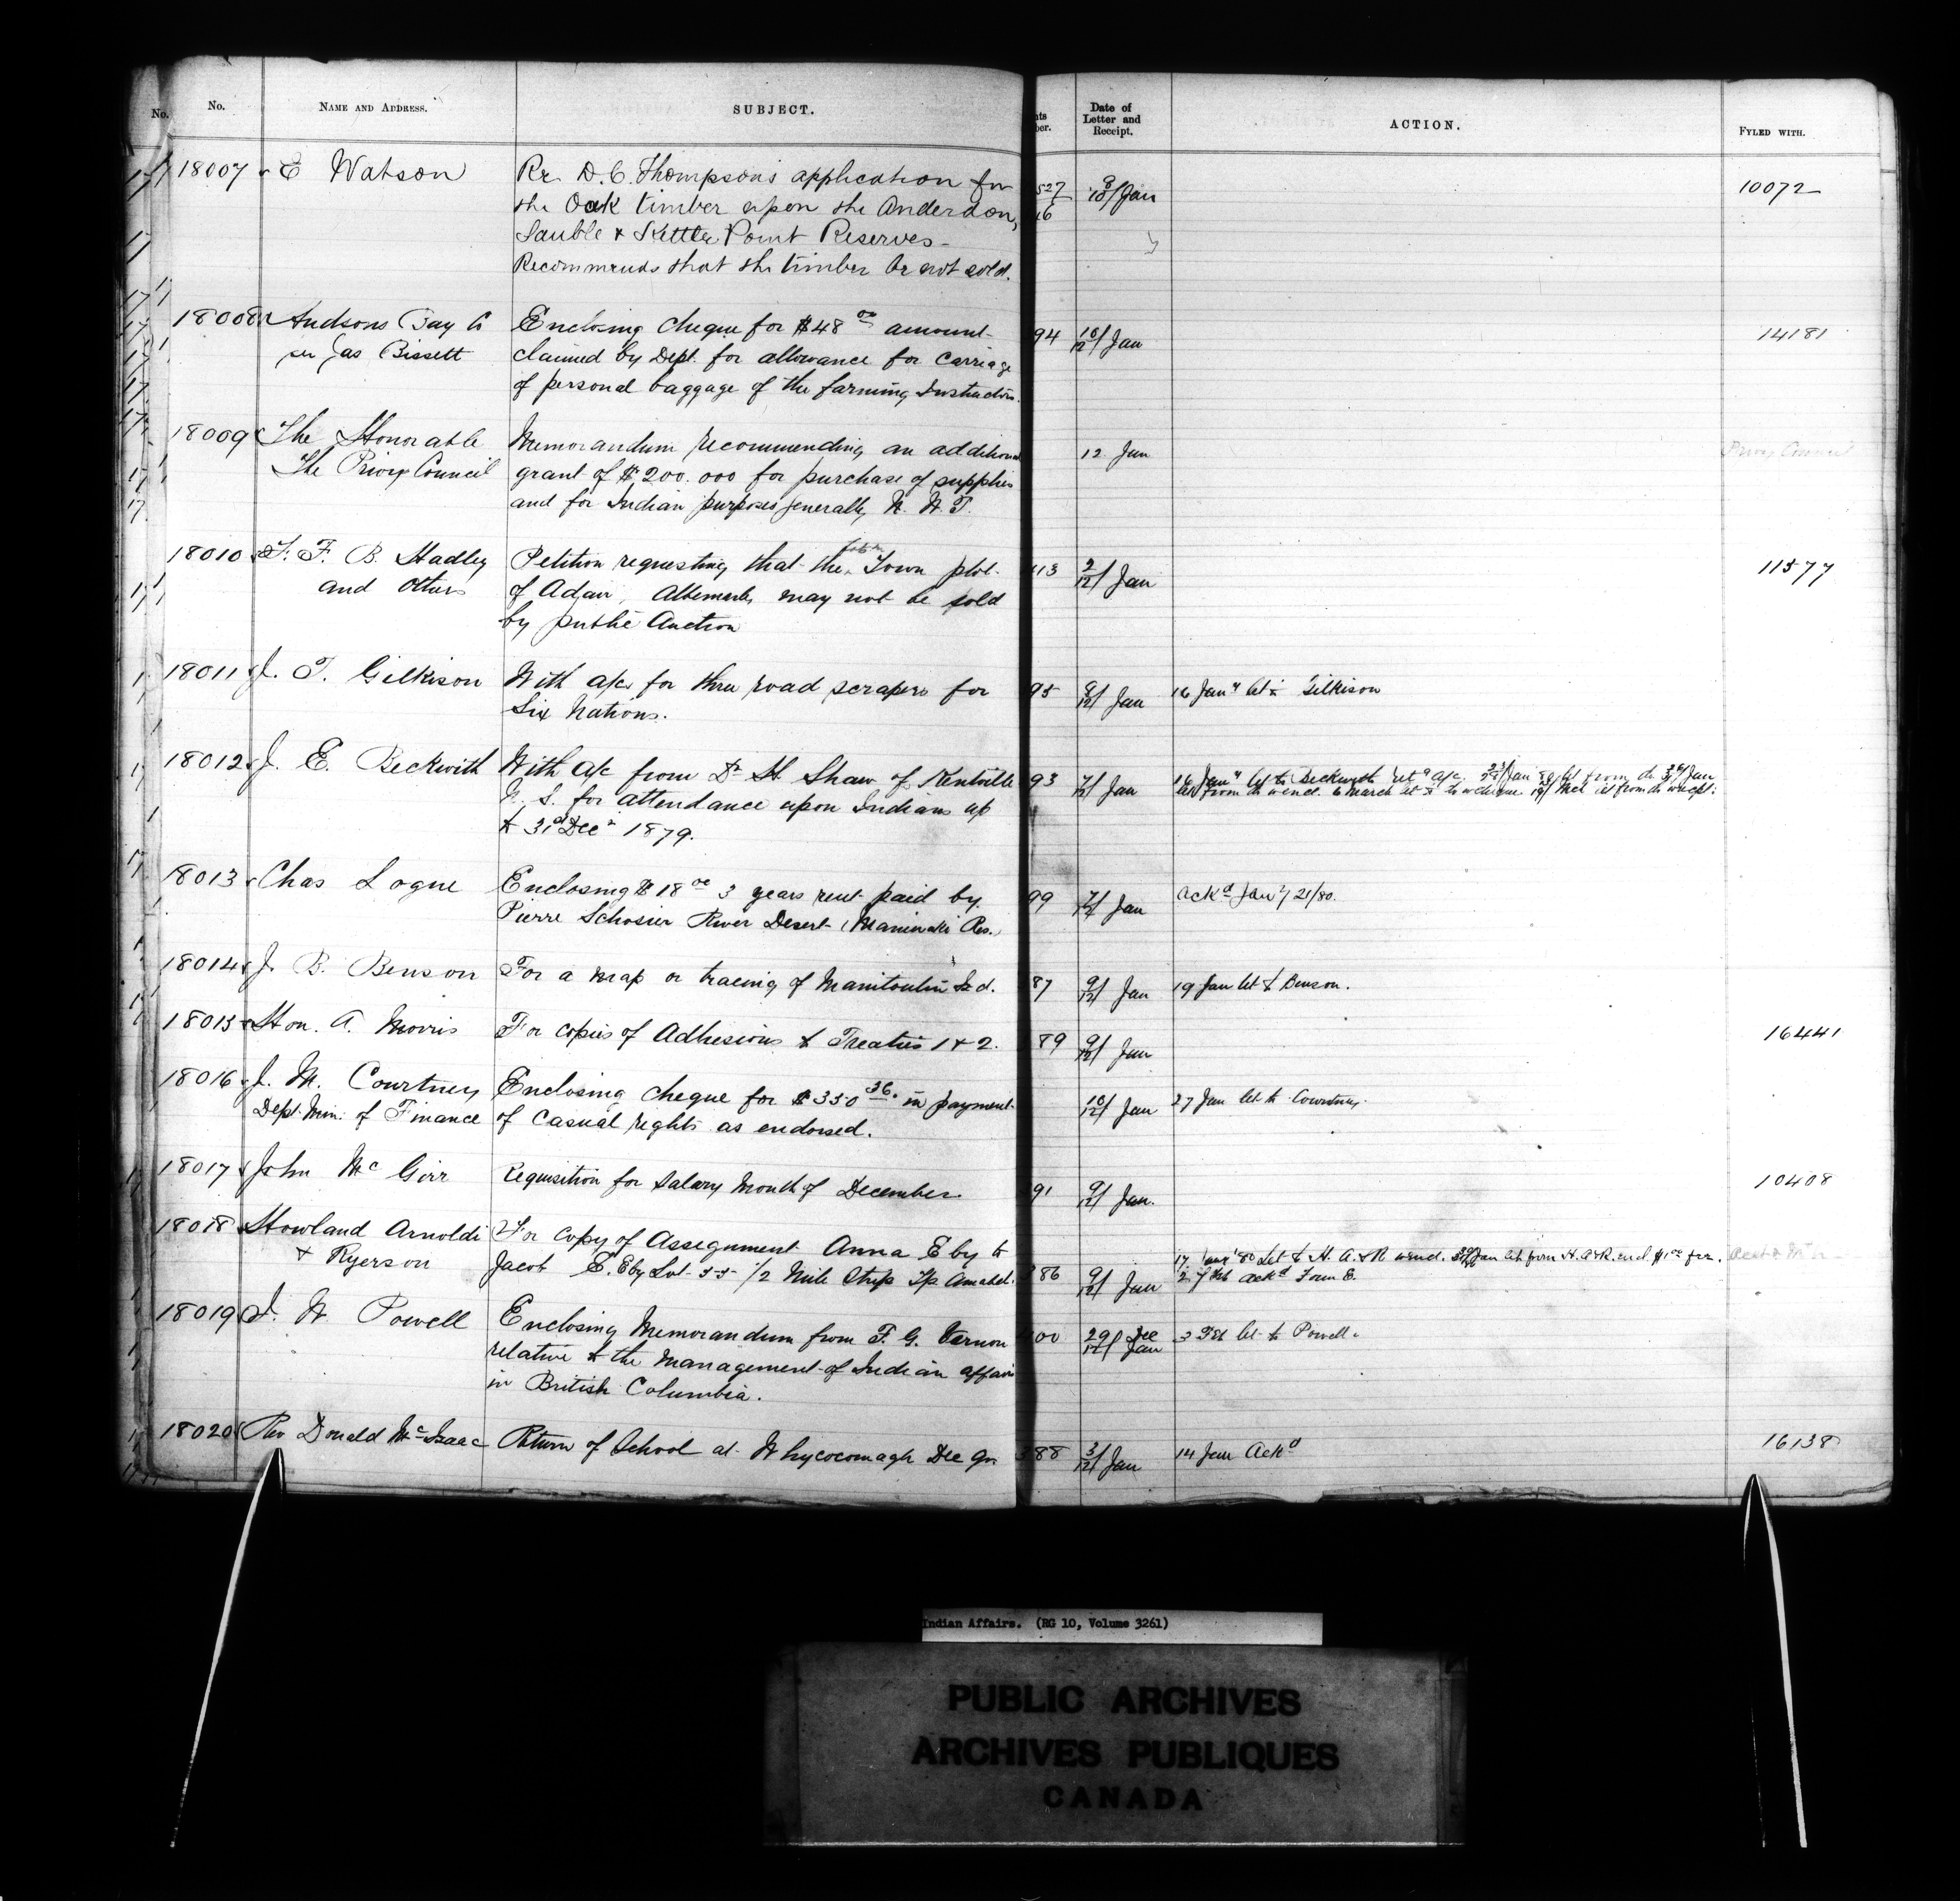 No.
No.
NAME AND ADDRESS.
SUBJECT.
Date of
Letter and
Receipt.
ACTION.
FYLED WITH.
18007 E Watson
Re D. C. Thompson's application for
the Oak timber upon the Anderdon,
Sauble & Kettle Point Reserves -
Recommends that the timber be not sold.
527
16
9/10/ Jan
10072
18008 Hudsons Bay Co
per Jas Bissett
Enclosing cheque for $48 00 amount
claimed by Dept. for allowance for carriage
of personal baggage of the farming Instructors.
94
10/12/ Jan
14181
18009 The Honorable
The Privy Council
Memorandum recommending an additional
grant of $200.000 for purchase of supplies
and for Indian purposes generally N. W. T.
12 Jan
Privy Council
18010 F. B. Hadley
and Others
Petition requesting that the Town plot
of Adair, Albemarle, may not be sold
by public Auction
113
2/12/ Jan
11577
18011 J. T. Gilkison
With a/c for three road scrapers for
Six Nations.
95
8/12/ Jan
16 Jany let to Gilkison
18012 J. E. Beckwith
With a/c from Dr H. Shaw of Kentville
N. S. for attendance upon Indians up
to 31st Decr 1879.
93
7/12/ Jan
16 Jany let to Beckwith retg a/c. Jan 80 let from do Jan
let from do w encl. 6 March let to do w cheque. Mch let from do w recpt.
18013 Chas Logue
Enclosing $18 00 3 years rent paid by
Pierre Schosier River Desert (Maniwaki Res.)
99
7/12/ Jan
Ackd Jany 21/80.
18014 J. B. Benson
For a map or tracing of Manitoulin Isd.
87
9/12/ Jan
19 Jan let to Benson.
18015 Hon. A. Morris
For copies of Adhesions to Treaties 1 & 2.
89
9/12/ Jan
16441
18016 J. M. Courtney
Dept. Min. of Finance
Enclosing cheque for $350 36. in payment
of Casual rights as endorsed.
10/12/ Jan
27 Jan let to Courtney.
18017 John McGirr
Requisition for Salary Month of December.
91
9/12/ Jan.
10408
18018 Howland Arnoldi
& Ryerson
For copy of Assignment Anna Eby to
Jacob E. Eby Lot 55 1/2 Mile Strip Tp Amabel.
386
9/12/ Jan
17 Jany '80 Let to H. A. & R w encl. 30/ Jan let from H. A & R. encl. $1 00 fee.
2 Feb Ackd Form E.
18019 I. W. Powell
Enclosing Memorandum from F. G. Vernon
relative to the management of Indian affairs
in British Columbia.
400
29/ Dec
12/ Jan
3 Feb let to Powell.
18020 Rev Donald McIsaac
Return of School at Whycocomagh Dec Qr
388
3/12/ Jan
14 Jan Ackd
16138
Indian Affairs. (RG 10, Volume 3261)
PUBLIC ARCHIVES
ARCHIVES PUBLIQUES
CANADA